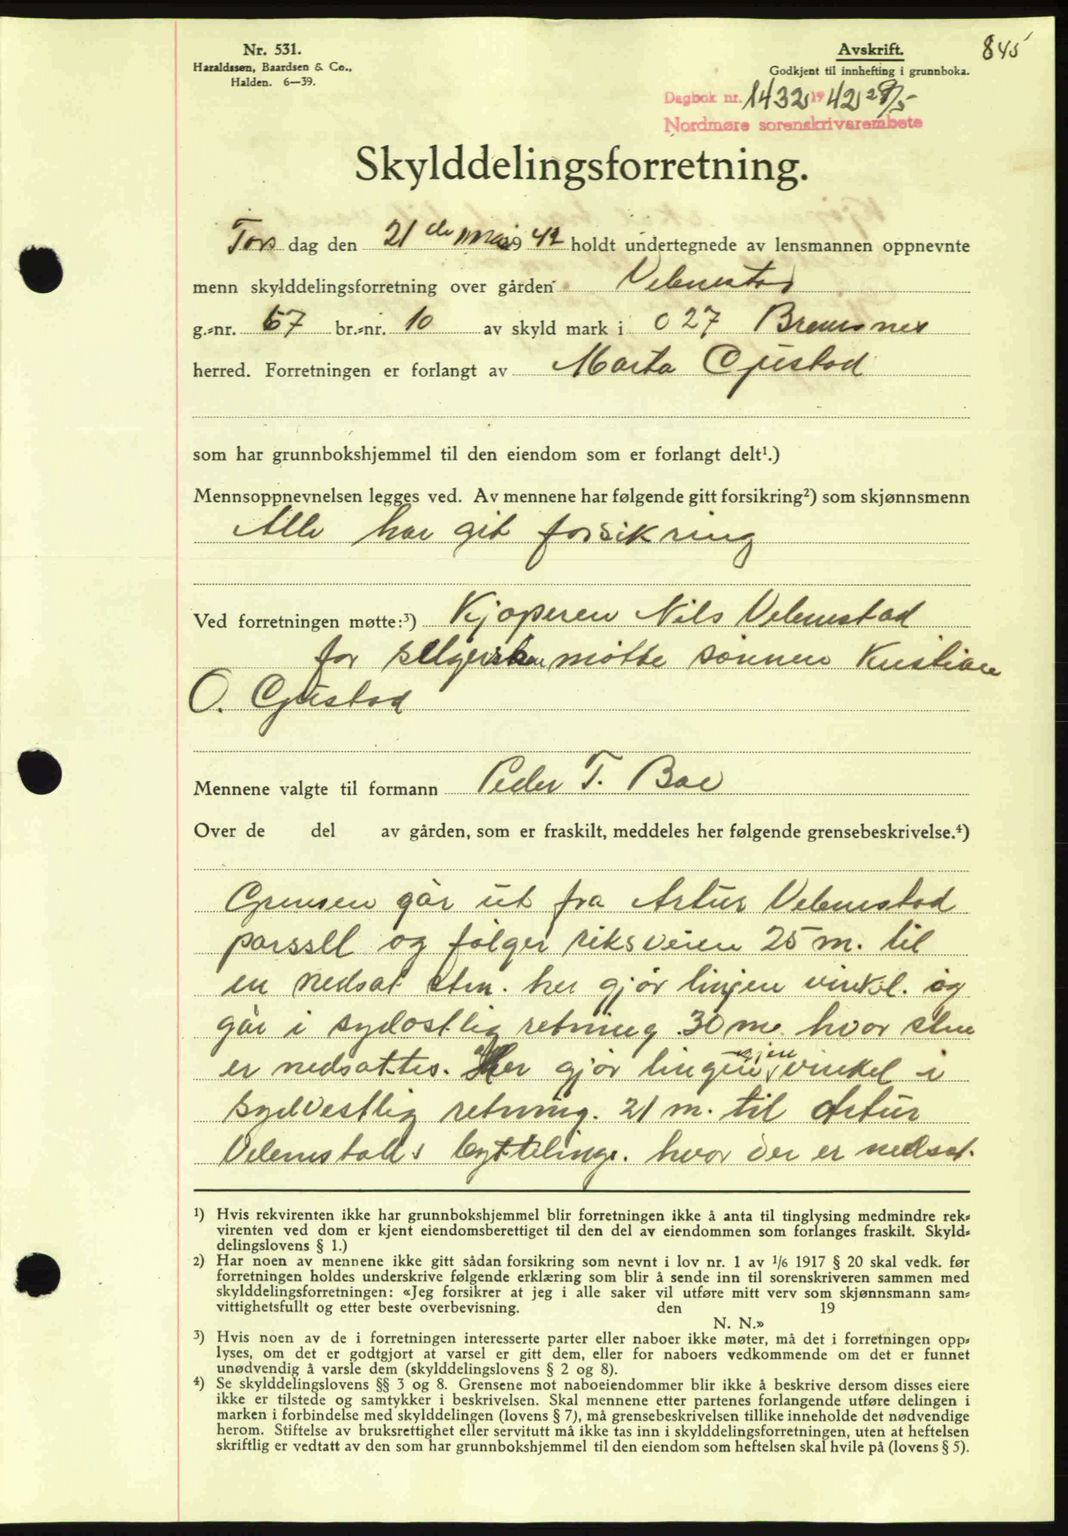 Nr. 531.
Haraldssøn, Baardsen & Co.,
Halden. 6—39.
Avskrift.
Godkjent til innhefting i grunnboka.
845
Dagbok nr. 1432 1942 28/5
Nordmøre sorenskriverembete
Skylddelingsforretning.
Tors dag den 21 de mai 1942 holdt undertegnede av lensmannen oppnevnte
menn skylddelingsforretning over gården Velemstad
g.-nr. 67 br.-nr. 10 av skyld mark i 0 27 Bremsnes
herred. Forretningen er forlangt av Marta Gjøstad
som har grunnbokshjemmel til den eiendom som er forlangt delt¹.)
Mennsoppnevnelsen legges ved. Av mennene har følgende gitt forsikring²) som skjønnsmenn
Alle har git forsikring
Ved forretningen møtte:³) Kjøperen Nils Velemstad
for selgersken møtte sønnen Kristian
O. Gjøstad
Mennene valgte til formann Peder T. Boe
Over de del av gården, som er fraskilt, meddeles her følgende grensebeskrivelse.⁴)
Grensen går ut fra Artur Velemstad
parsell og følger riksveien 25 m. til
en nedsat sten. her gjør linjen vinkel. og
går i sydøstlig retning 30 m. hvor sten
er nedsattes. Her gjør lingen igjen vinkel i
sydvestlig retning. 21 m. til Artur
Velemstads byttelinge. hvor der er nedsat.
¹) Hvis rekvirenten ikke har grunnbokshjemmel blir forretningen ikke å anta til tinglysing medmindre rek-
virenten ved dom er kjent eiendomsberettiget til den del av eiendommen som forlanges fraskilt. Skyld-
delingslovens § 1.)
²) Har noen av mennene ikke gitt sådan forsikring som nevnt i lov nr. 1 av 1/6 1917 § 20 skal vedk. før
forretningen holdes underskrive følgende erklæring som blir å sende inn til sorenskriveren sammen med
skylddelingsforretningen: «Jeg forsikrer at jeg i alle saker vil utføre mitt verv som skjønnsmann sam-
vittighetsfullt og etter beste overbevisning. den 19
N. N.»
³) Hvis noen av de i forretningen interesserte parter eller naboer ikke møter, må det i forretningen opp-
lyses, om det er godtgjort at varsel er gitt dem, eller for naboers vedkommende om det er funnet
unødvendig å varsle dem (skylddelingslovens § 2 og 8).
⁴) Se skylddelingslovens §§ 3 og 8. Grensene mot naboeiendommer blir ikke å beskrive dersom disses eiere
ikke er tilstede og samtykker i beskrivelsen. Skal mennene etter partenes forlangende utføre delingen i
marken i forbindelse med skylddelingen (lovens § 7), må grensebeskrivelsen tillike inneholde det nødvendige
herom. Stiftelse av bruksrettighet eller servitutt må ikke tas inn i skylddelingsforretningen, uten at heftelsen
skriftlig er vedtatt av den som har grunnbokshjemmel til den eiendom som heftelsen skal hvile på (lovens § 5).